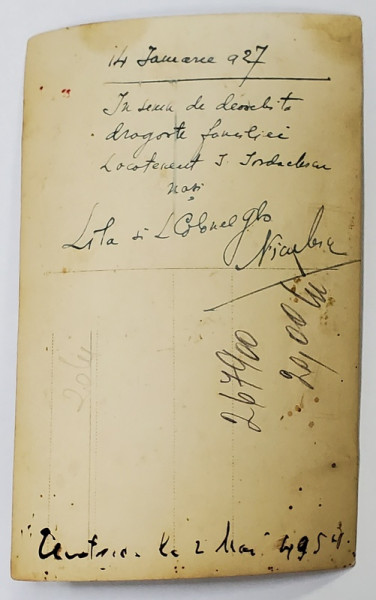 14 Ianuarie 927
In semn de deosebita
dragoste familiei
Locotenent I. Iordachescu
nași
Lila si L Colonel Gh
20 lei
267900
29,00 lei
la 2 Mai 1954.